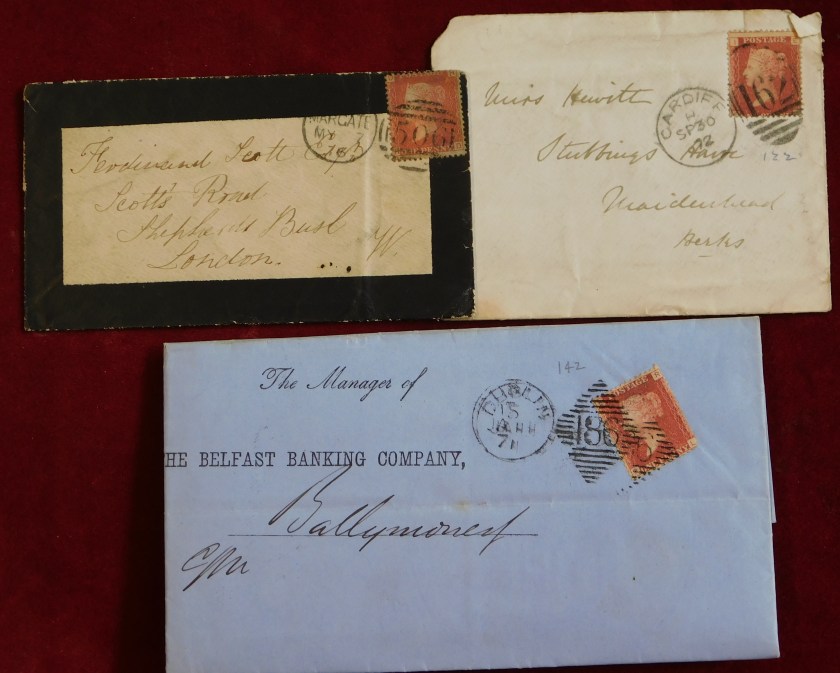 MARGATE
MY 7
76
506
POSTAGE
Ferdinand Scott Esq
Scott's Road
Shepherds Bush
London. W.
POSTAGE
162
CARDIFF
SP 30
72
Miss Hewitt
Stubbings
Maidenhead
Berks
122
142
The Manager of
DUBLIN
15
71
186
POSTAGE
HE BELFAST BANKING COMPANY,
Ballymoney